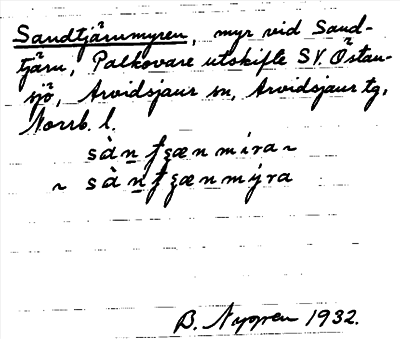 Sandtjärnmyren, myr vid Sand-
tjärn, Palkovare utskifte SV. Östan-
sjö, Arvidsjaur sn, Arvidsjaur tg,
Norrb. l.
~
~
B. Nygren 1932.